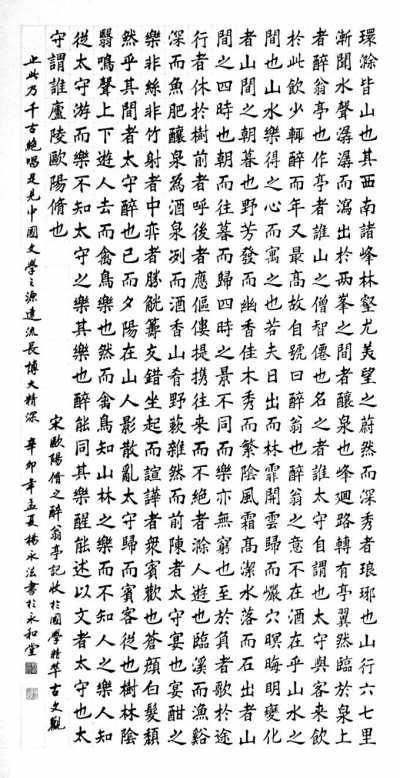 環滁皆山也其西南諸峰林壑尤美望之蔚然而深秀者琅琊也山行六七里
漸聞水聲潺潺而瀉出於兩峯之間者釀泉也峰迴路轉有亭翼然臨於泉上
者醉翁亭也作亭者誰山之僧智僊也名之者誰太守自謂也太守與客來飲
於此飲少輒醉而年又最高故自號曰醉翁也醉翁之意不在酒在乎山水之
間也山水樂得之心而寓之也若夫日出而林霏開雲歸而巖穴暝晦明變化
者山間之朝暮也野芳發而幽香佳木秀而繁陰風霜高潔水落而石出者山
間之四時也朝而往暮而歸四時之景不同而樂亦無窮也至於負者歌於途
行者休於樹前者呼後者應傴僂提攜往來而不絕者滁人遊也臨溪而漁谿
深而魚肥釀泉為酒泉冽而酒香山肴野蔌雜然而前陳者太守宴也宴酣之
樂非絲非竹射者中弈者勝觥籌交錯坐起而諠譁者衆賓歡也蒼顏白髮頹
然乎其間者太守醉也已而夕陽在山人影散亂太守歸而賓客從也樹林陰
翳鳴聲上下遊人去而禽鳥樂也然而禽鳥知山林之樂而不知人之樂人知
從太守游而樂不知太守之樂其樂也醉能同其樂醒能述以文者太守也太
守謂誰廬陵歐陽脩也
宋歐陽脩之醉翁亭記收於國學精萃古文觀
止此乃千古絕唱足見中國文學之源遠流長博大精深 辛卯年孟夏楊永法書於永和堂